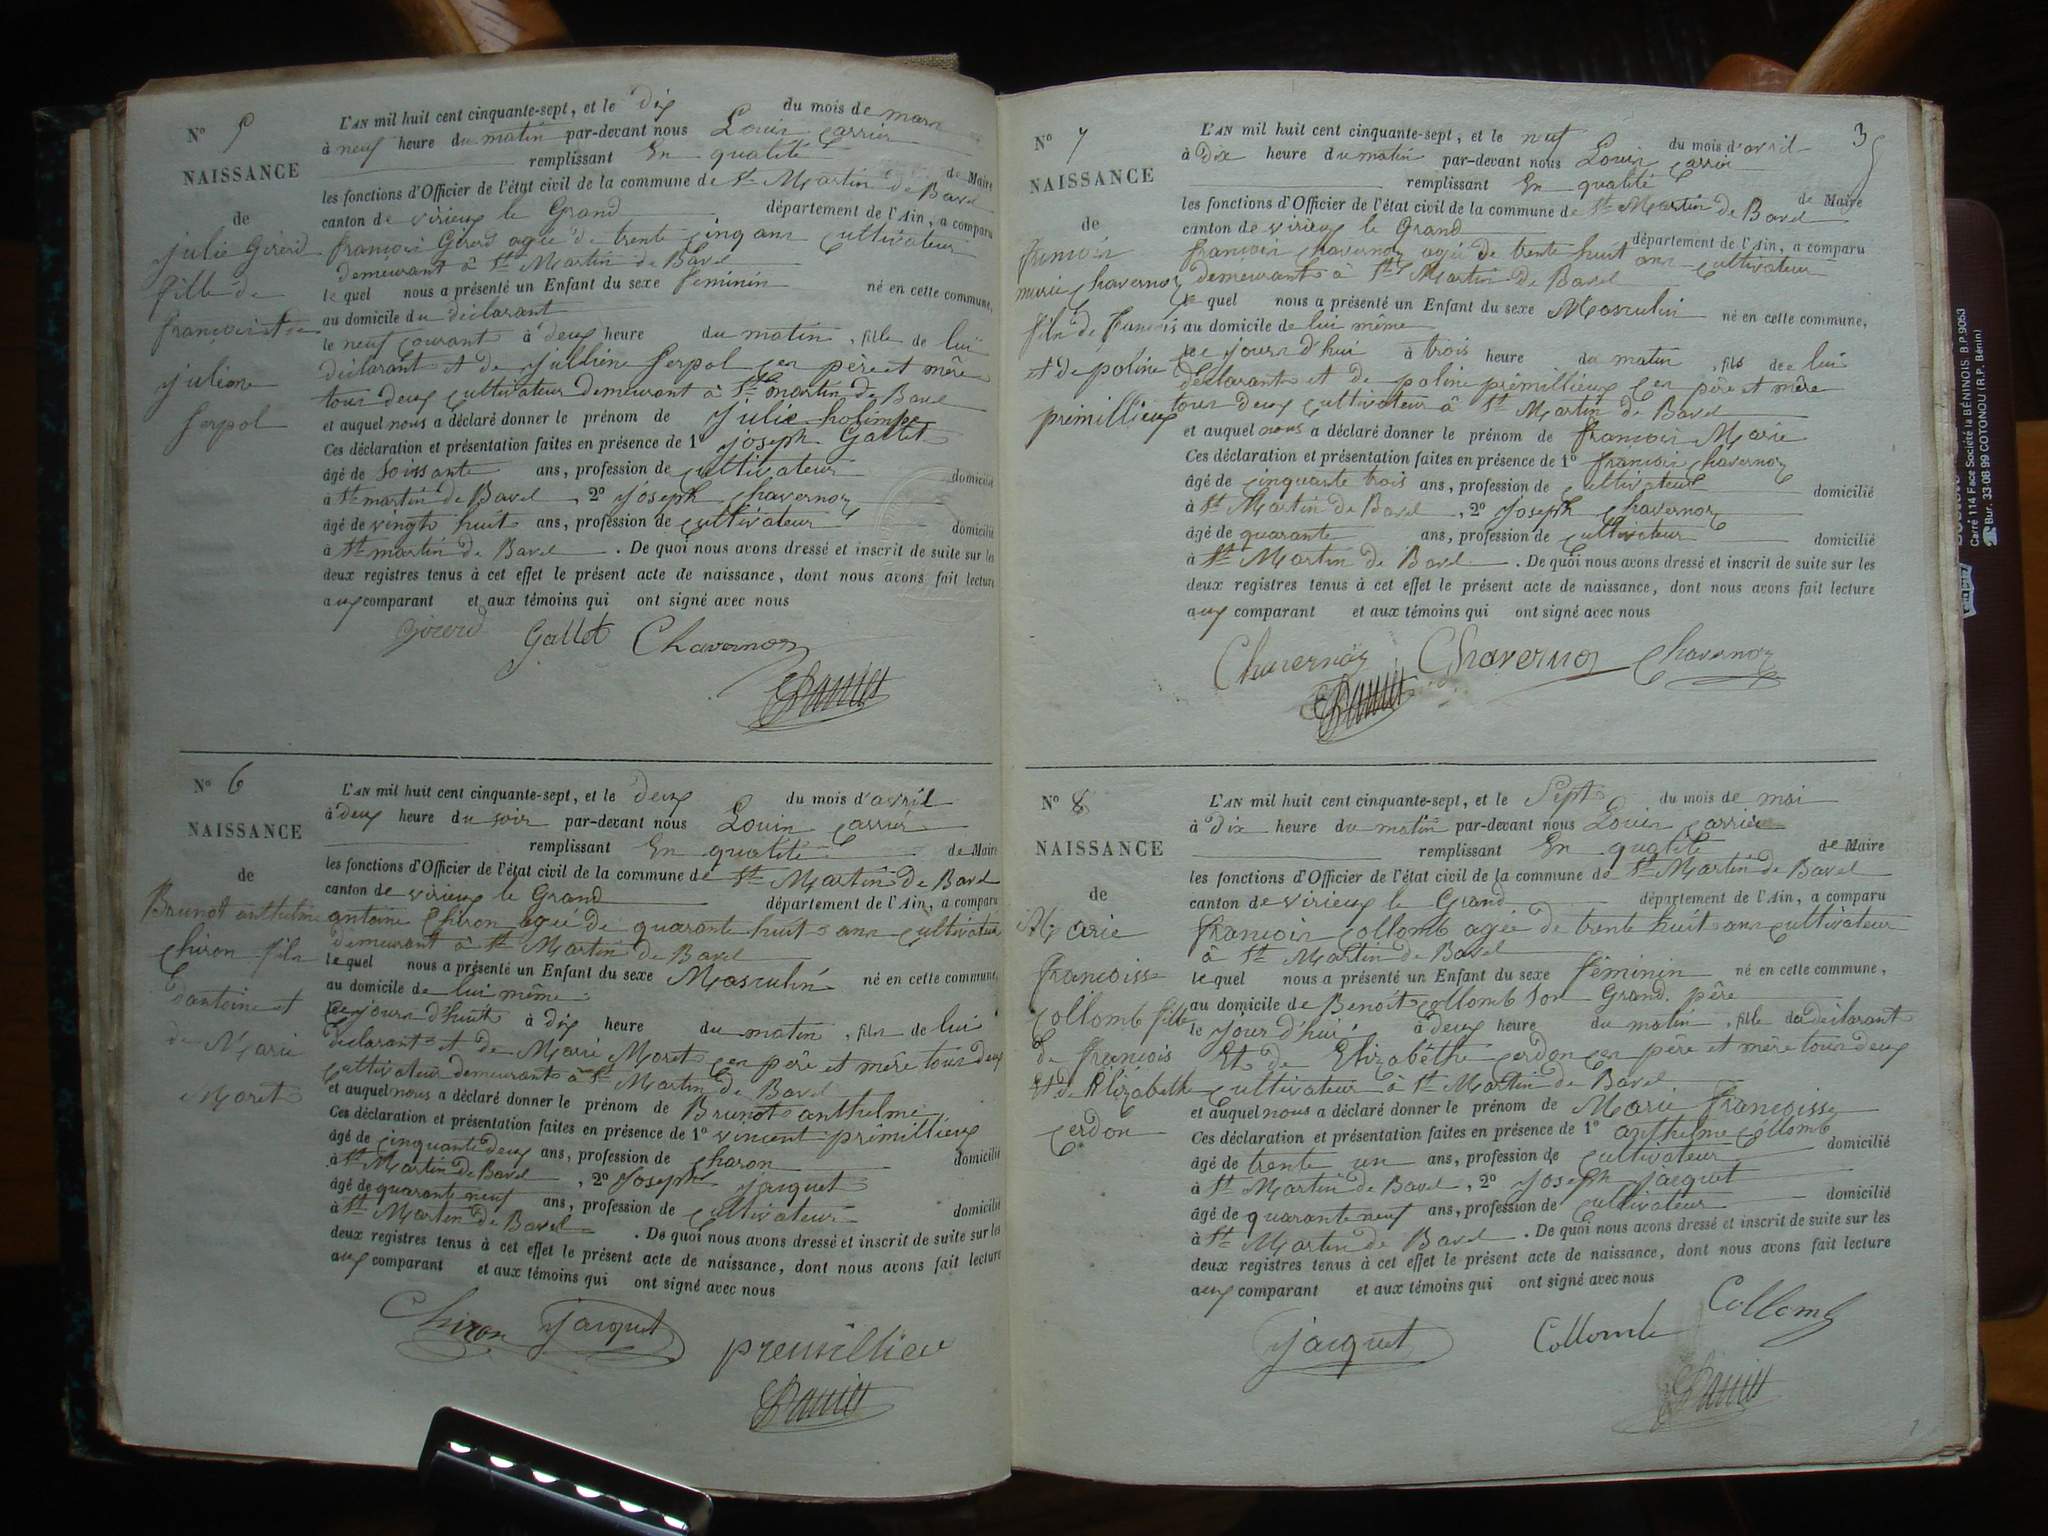 N° 5
NAISSANCE
de
julie Girerd
fille de
francois et de
juliene
serpol
L'AN mil huit cent cinquante-sept, et le dix du mois de mars
à neuf heure du matin par-devant nous Louis Carrier
remplissant En qualité de Maire
les fonctions d'Officier de l'état civil de la commune de St Martin de Bavel
canton de virieux le Grand département de l'Ain, a comparu
francois Girerd agée de trente cinq ans cultivateur
demeurant à St Martin de Bavel
le quel nous a présenté un Enfant du sexe féminin né en cette commune,
au domicile du déclarant
le neuf courant à deux heure du matin, fille de lui
déclarant et de Julliene serpol ces père et mère
tous deux cultivateur demeurant à St martin de Bavel
et auquel nous a déclaré donner le prénom de Julie holimpe
Ces déclaration et présentation faites en présence de 1° joseph Gallet
âgé de soissante ans, profession de cultivateur domicilié
à St martin de Bavel, 2° Joseph Chavernoz
âgé de vingts huit ans, profession de cultivateur domicilié
à St martin de Bavel. De quoi nous avons dressé et inscrit de suite sur les
deux registres tenus à cet effet le présent acte de naissance, dont nous avons fait lecture
aux comparant et aux témoins qui ont signé avec nous
Girerd Gallet Chavernoz
N° 6
NAISSANCE
de
Brunot anthelme
Chiron fils
d'antoine et
de Marie
Moret
L'AN mil huit cent cinquante-sept, et le deux du mois d'avril
à deux heure du soir par-devant nous Louis Carrier
remplissant En qualité de Maire
les fonctions d'Officier de l'état civil de la commune de St Martin de Bavel
canton de virieux le Grand département de l'Ain, a comparu
antoine Chiron agée de quarante huit ans cultivateur
demeurant à St Martin de Bavel
le quel nous a présenté un Enfant du sexe Masculin né en cette commune,
au domicile de lui même
ce jours d'huit à dix heure du matin, fils de lui
declarant et de Marie Moret ces père et mère tous deux
cultivateur demeurant à St Martin de Bavel
et auquel nous a déclaré donner le prénom de Brunot anthelme
Ces déclaration et présentation faites en présence de 1° vincent primillieux
âgé de cinquante deux ans, profession de charon domicilié
à St Martin de Bavel, 2° Joseph jacquet
âgé de quarante neuf ans, profession de cultivateur domicilié
à St Martin de Bavel. De quoi nous avons dressé et inscrit de suite sur les
deux registres tenus à cet effet le présent acte de naissance, dont nous avons fait lecture
aux comparant et aux témoins qui ont signé avec nous
Chiron Jacquet premillieu
3
N° 7
NAISSANCE
de
francois
marie Chavernoz
fils de francois
et de poline
primillieux
L'AN mil huit cent cinquante-sept, et le neuf du mois d'avril
à dix heure du matin par-devant nous Louis Carrier
remplissant En qualité de Maire
les fonctions d'Officier de l'état civil de la commune de St Martin de Bavel
canton de virieux le Grand département de l'Ain, a comparu
francois Chavernoz agé de trente huit ans cultivateur
demeurant à St Martin de Bavel
le quel nous a présenté un Enfant du sexe Masculin né en cette commune,
au domicile de lui même
ce jours d'hui à trois heure du matin, fils de lui
déclarant et de poline primillieux ces père et mère
tous deux cultivateur à St Martin de Bavel
et auquel nous a déclaré donner le prénom de francois Marie
Ces déclaration et présentation faites en présence de 1° francois Chavernoz
âgé de cinquante trois ans, profession de cultivateur domicilié
à St Martin de Bavel, 2° Joseph Chavernoz
âgé de quarante ans, profession de cultivateur domicilié
à St Martin de Bavel. De quoi nous avons dressé et inscrit de suite sur les
deux registres tenus à cet effet le présent acte de naissance, dont nous avons fait lecture
aux comparant et aux témoins qui ont signé avec nous
Chavernoz Chavernoz Chavernoz
N° 8
NAISSANCE
de
Marie
francoisse
Collomb fille
de francois
Et d'Elizabethe
Cerdon
L'AN mil huit cent cinquante-sept, et le Sept du mois de mai
à dix heure du matin par-devant nous Louis Carrier
remplissant En qualité de Maire
les fonctions d'Officier de l'état civil de la commune de St Martin de Bavel
canton de virieux le Grand département de l'Ain, a comparu
francois Collomb agée de trente huit ans cultivateur
à St Martin de Bavel
le quel nous a présenté un Enfant du sexe féminin né en cette commune,
au domicile de Benoit Collomb son Grand père
le jour d'hui à deux heure du matin, fille du déclarant
Et de Elizabêthe Cerdon ces père et mère tous deux
cultivateur à St Martin de Bavel
et auquel nous a déclaré donner le prénom de Marie francoisse
Ces déclaration et présentation faites en présence de 1° anthelme Collomb
âgé de trente un ans, profession de cultivateur domicilié
à St Martin de Bavel, 2° joseph jacquet
âgé de quarante neuf ans, profession de cultivateur domicilié
à St Martin de Bavel. De quoi nous avons dressé et inscrit de suite sur les
deux registres tenus à cet effet le présent acte de naissance, dont nous avons fait lecture
aux comparant et aux témoins qui ont signé avec nous
Jacquet Collomb Collomb
Carré 1114 Face Société la BÉNINOIS. B.P. 9053
Bur. 33 08 99 COTONOU (R.P. Bénin)